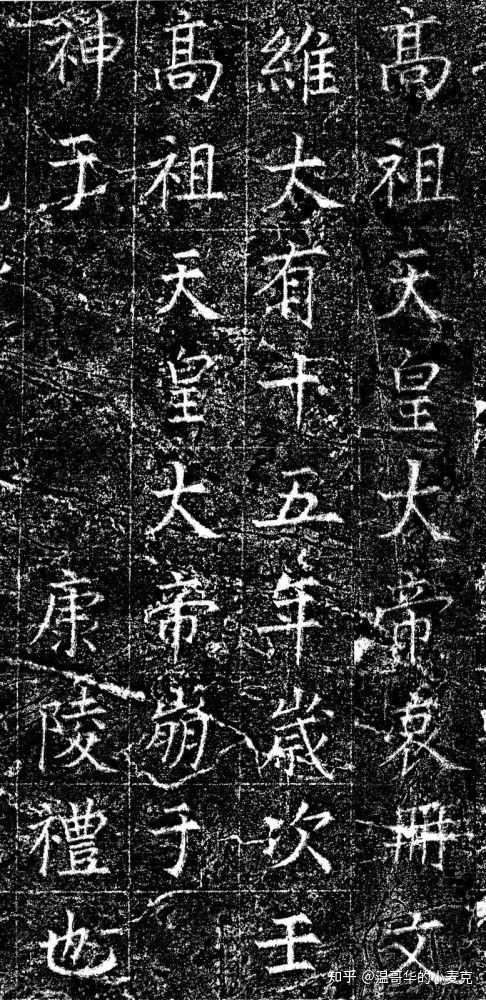 高祖天皇大帝哀冊文
維大有十五年歲次壬
高祖天皇大帝崩于
神于康陵禮也
知乎 @温哥华的小麦克